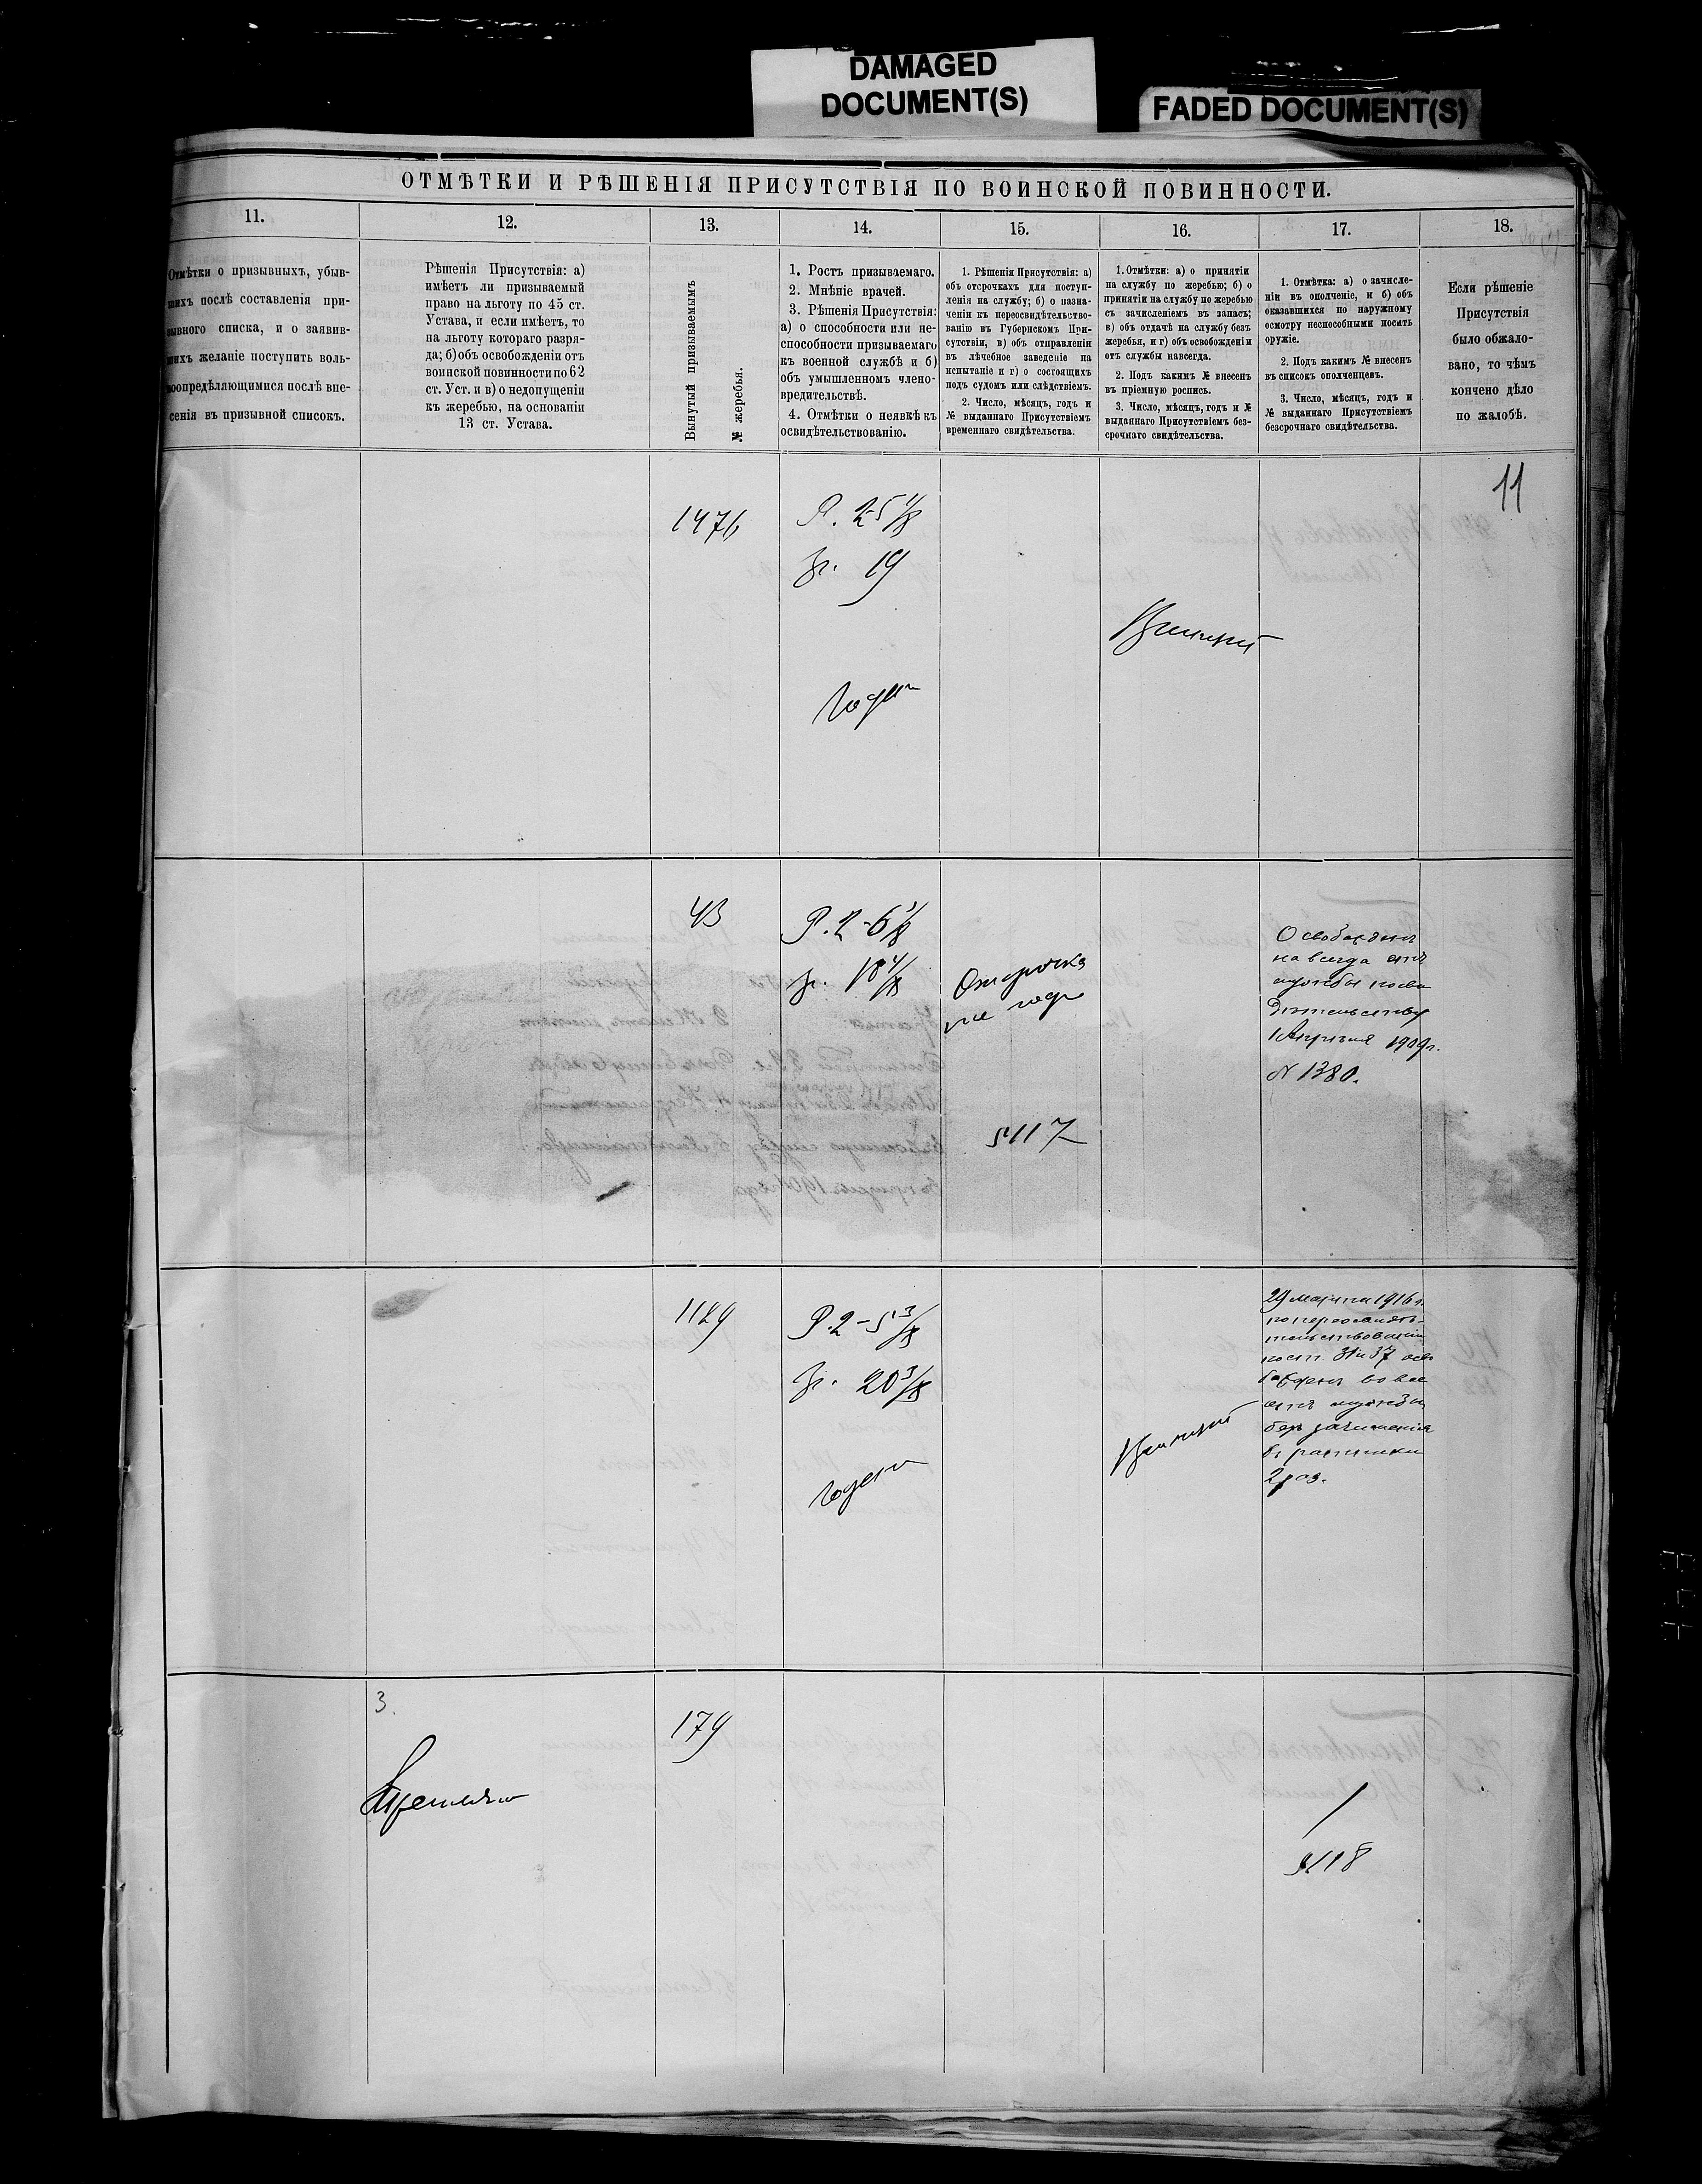 DAMAGED
DOCUMENT(S)
FADED DOCUMENT(S)
ОТМѢТКИ И РѢШЕНІЯ ПРИСУТСТВІЯ ПО ВОИНСКОЙ ПОВИННОСТИ.
11.
Отмѣтки о призывныхъ, убыв-
шихъ послѣ составленія при-
зывного списка, и о заявив-
шихъ желаніе поступить воль-
ноопредѣляющимися послѣ вне-
сенія въ призывной списокъ.
12.
Рѣшенія Присутствія: а)
имѣетъ ли призываемый
право на льготу по 45 ст.
Устава, и если имѣетъ, то
на льготу котораго разря-
да; б) объ освобожденіи отъ
воинской повинности по 62
ст. Уст. и в) о недопущеніи
къ жеребью, на основаніи
13 ст. Устава.
13.
Вынутый призываемымъ
№ жеребья.
14.
1. Ростъ призываемаго.
2. Мнѣніе врачей.
3. Рѣшенія Присутствія:
а) о способности или не-
способности призываемаго
къ военной службѣ и б)
объ умышленномъ члено-
вредительствѣ.
4. Отмѣтки о неявкѣ къ
освидѣтельствованію.
15.
1. Рѣшенія Присутствія: а)
объ отсрочкахъ для поступ-
ленія на службу; б) о назна-
ченіи къ переосвидѣтельство-
ванію въ Губернскомъ При-
сутствіи, в) объ отправленіи
въ лѣчебное заведеніе на
испытаніе и г) о состоящихъ
подъ судомъ или слѣдствіемъ.
2. Число, мѣсяцъ, годъ и
№ выданнаго Присутствіемъ
временнаго свидѣтельства.
16.
1. Отмѣтки: а) о принятіи
на службу по жеребью; б) о
принятіи на службу по жеребью
съ зачисленіемъ въ запасъ;
в) объ отдачѣ на службу безъ
жеребья, и г) объ освобожденіи
отъ службы навсегда.
2. Подъ какимъ № внесенъ
въ пріемную роспись.
3. Число, мѣсяцъ, годъ и №
выданнаго Присутствіемъ без-
срочнаго свидѣтельства.
17.
1. Отмѣтка: а) о зачисле-
ніи въ ополченіе, и б) объ
оказавшихся по наружному
осмотру неспособными носить
оружіе.
2. Подъ какимъ № внесенъ
въ списокъ ополченцевъ.
3. Число, мѣсяцъ, годъ и
№ выданнаго Присутствіемъ
безсрочнаго свидѣтельства.
18.
Если рѣшеніе
Присутствія
было обжало-
вано, то чѣмъ
кончено дѣло
по жалобѣ.
11
1476
Р. 2-5 4/8
Гр. 19
Годенъ
Принятъ
43
Р. 2-6 1/8
Гр. 18 4/8
Отсрочка
на годъ
5117
Освобожденъ
навсегда отъ
службы по сви
дѣтельству
1 Апрѣля 1909 г.
№ 1380.
1129
Р. 2-5 3/8
Гр. 20 3/8
Годенъ
Принятъ
29 марта 1916 г.
по переосвидѣ-
тельствованіи
по ст. 31 и 37 осво
божденъ вовсе
отъ службы
безъ зачисленія
въ ратники
2 раз.
3.
179
5118